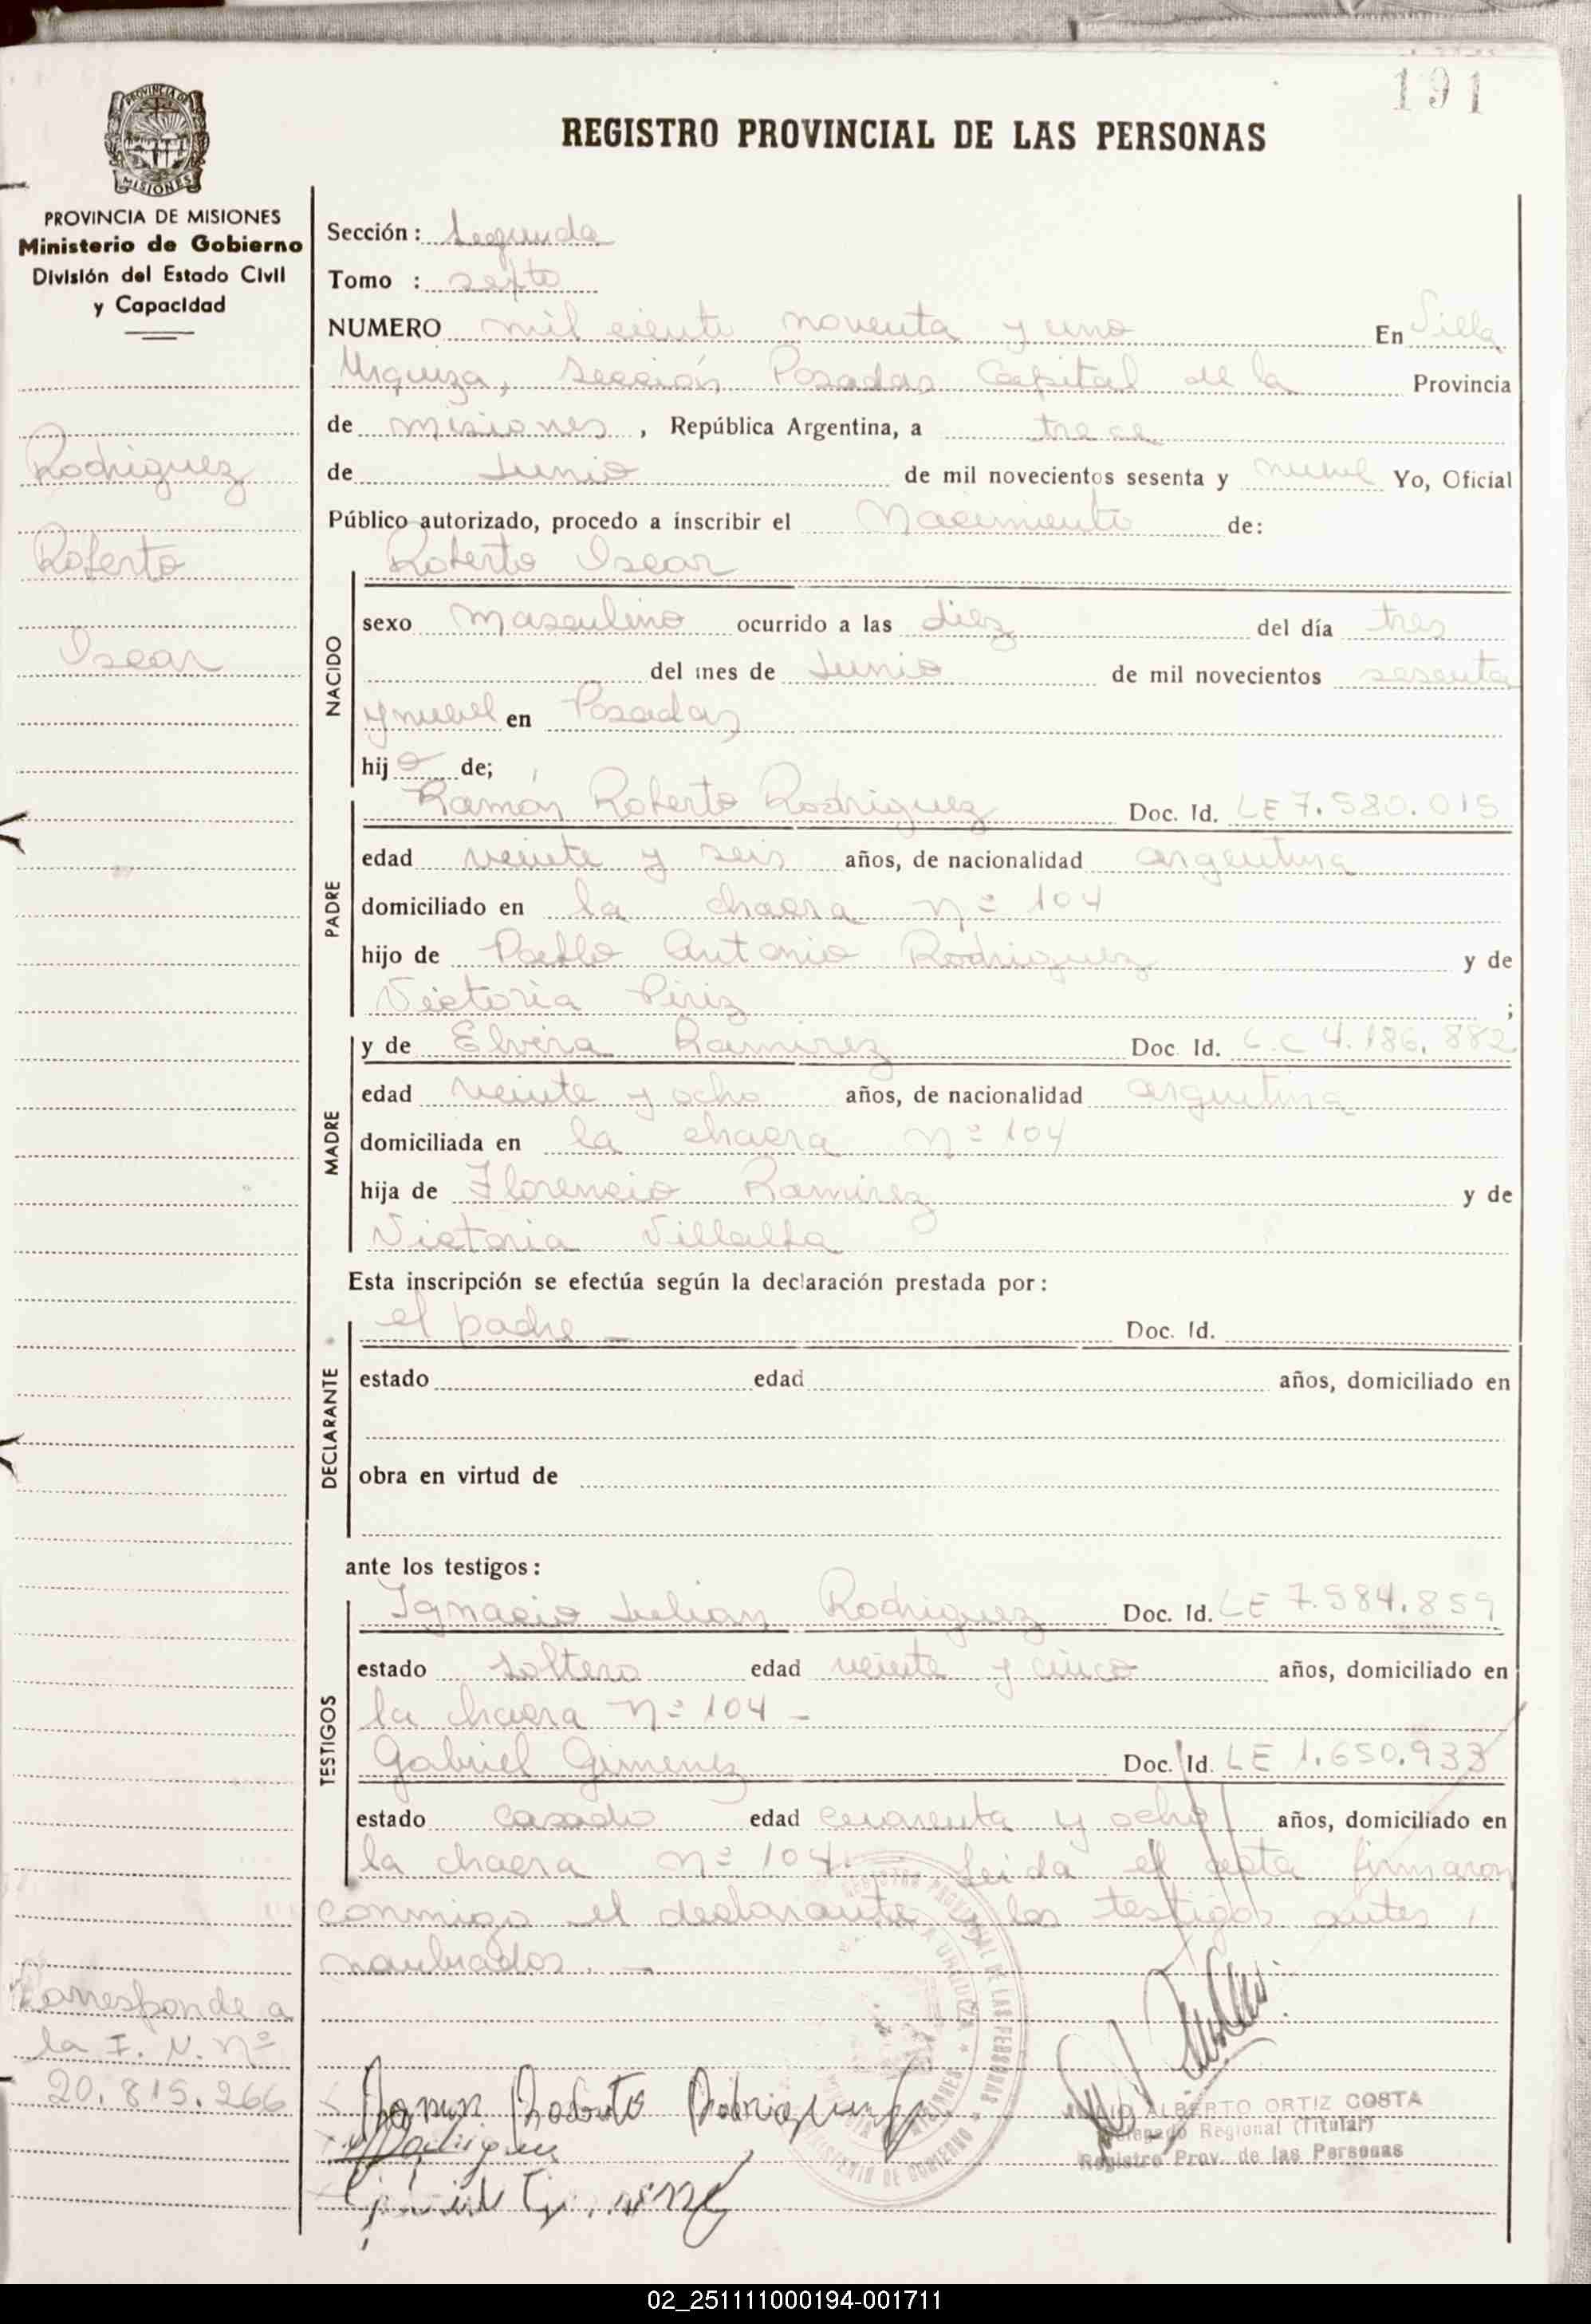 191
PROVINCIA DE MISIONES
REGISTRO PROVINCIAL DE LAS PERSONAS
PROVINCIA DE MISIONES
Ministerio de Gobierno
División del Estado Civil
y Capacidad
Rodriguez
Roberto
Oscar
Sección: Segunda
Tomo : sexto
NUMERO mil ciento noventa y uno En Villa
Urquiza, Sección Posadas Capital de la Provincia
de misiones, República Argentina, a trece
de Junio de mil novecientos sesenta y nueve Yo, Oficial
Público autorizado, procedo a inscribir el Nacimiento de:
NACIDO
Roberto Oscar
sexo masculino ocurrido a las diez del día tres
del mes de Junio de mil novecientos sesenta
y nueve en Posadas
hijo de;
PADRE
Ramón Roberto Rodriguez Doc. Id. LE 7.580.015
edad veinte y seis años, de nacionalidad argentina
domiciliado en la chacra nº 104
hijo de Pablo Antonio Rodriguez y de
Victoria Piriz ;
MADRE
y de Elvira Ramirez Doc. Id. L.C 4.186.882
edad veinte y ocho años, de nacionalidad argentina
domiciliada en la chacra nº 104
hija de Florencio Ramirez y de
Victoria Villalba
Esta inscripción se efectúa según la declaración prestada por:
DECLARANTE
el padre — Doc. Id.
estado edad años, domiciliado en
obra en virtud de
ante los testigos:
TESTIGOS
Ignacio Julian Rodriguez Doc. Id. LE 7.584.859
estado soltero edad veinte y cinco años, domiciliado en
la chacra nº 104 -
Gabriel Gimenez Doc. Id. LE 1.650.933
estado casado edad cuarenta y ocho años, domiciliado en
la chacra nº 104. — Leida el acta firmaron
conmigo el declarante y los testigos antes
nombrados. —
Corresponde a
la I. N. nº
20.815.266
Ramon Roberto Rodriguez
JULIO ALBERTO ORTIZ COSTA
Delegado Regional (Titular)
Registro Prov. de las Personas
REGISTRO PROVINCIAL DE LAS PERSONAS
MINISTERIO DE GOBIERNO
02_251111000194-001711